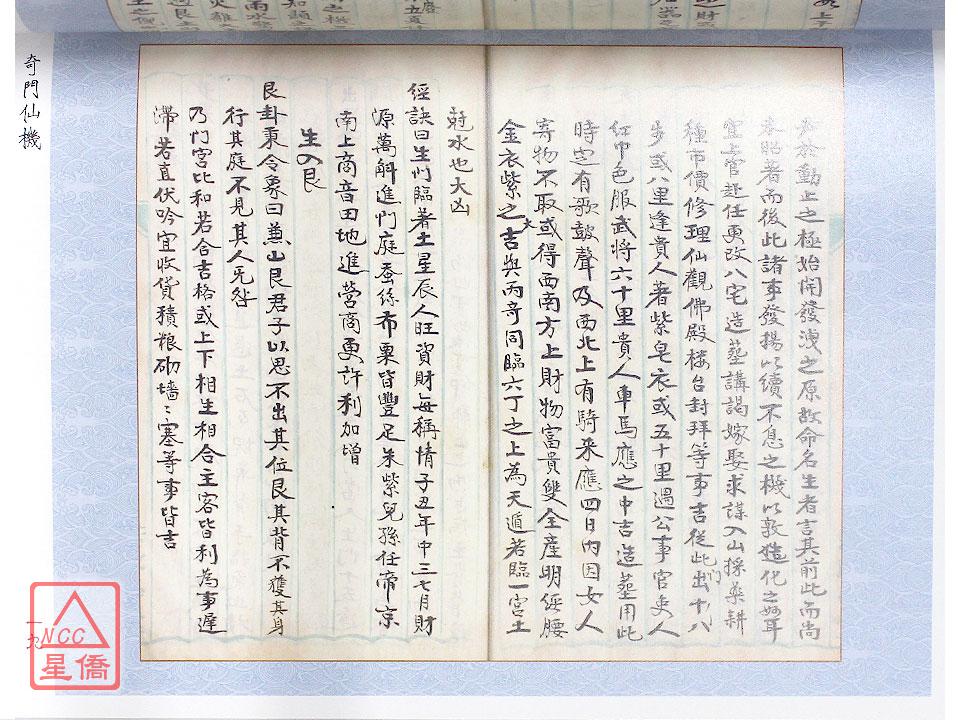 於動上之極始開發洩之原故命名生者言其前此而尚
未昭著而後此諸事發揚以續不息之機以敦造化之耳
宜上官赴任更改八宅造葬講謁嫁娶求謀入山採藥耕
種市價修理仙觀佛殿楼台封拜等事吉從此門出十八
步或八里逢貴人著紫皂衣或五十里遇公事官吏人
紅巾色服武將六十里貴人車馬應之中吉造葬用此
時定有歌鼓聲及西北上有騎來應四日內因女人
寄物不取或得西南方上財物富貴雙全産明經腰
金衣紫之大吉與丙奇同臨六丁之上為天遁若臨一宮土
尅水也大凶
經訣曰生門臨著土星辰人旺資財每稱情子丑年中三七月財
源萬斛進門庭蚕絲布粟皆豐足朱紫兒孫任帝京
南上商音田地進營商更許利加增
生入艮
艮卦秉令象曰兼山艮君子以思不出其位艮其背不獲其身
行其庭不見其人旡咎
乃門宮比和若合吉格或上下相生相合主客皆利為事遲
滯若直伏吟宜收貨積粮砌墙〻塞等事皆吉
奇門仙機
一九
NCC
星僑